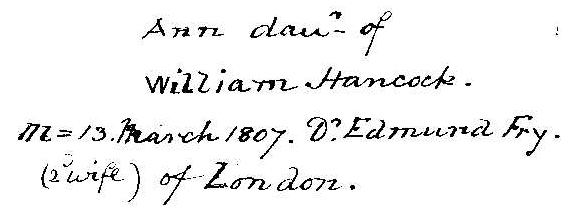 Ann daur of
William Hancock.
m = 13. March 1807. Dr. Edmund Fry.
(2d wife) of London.